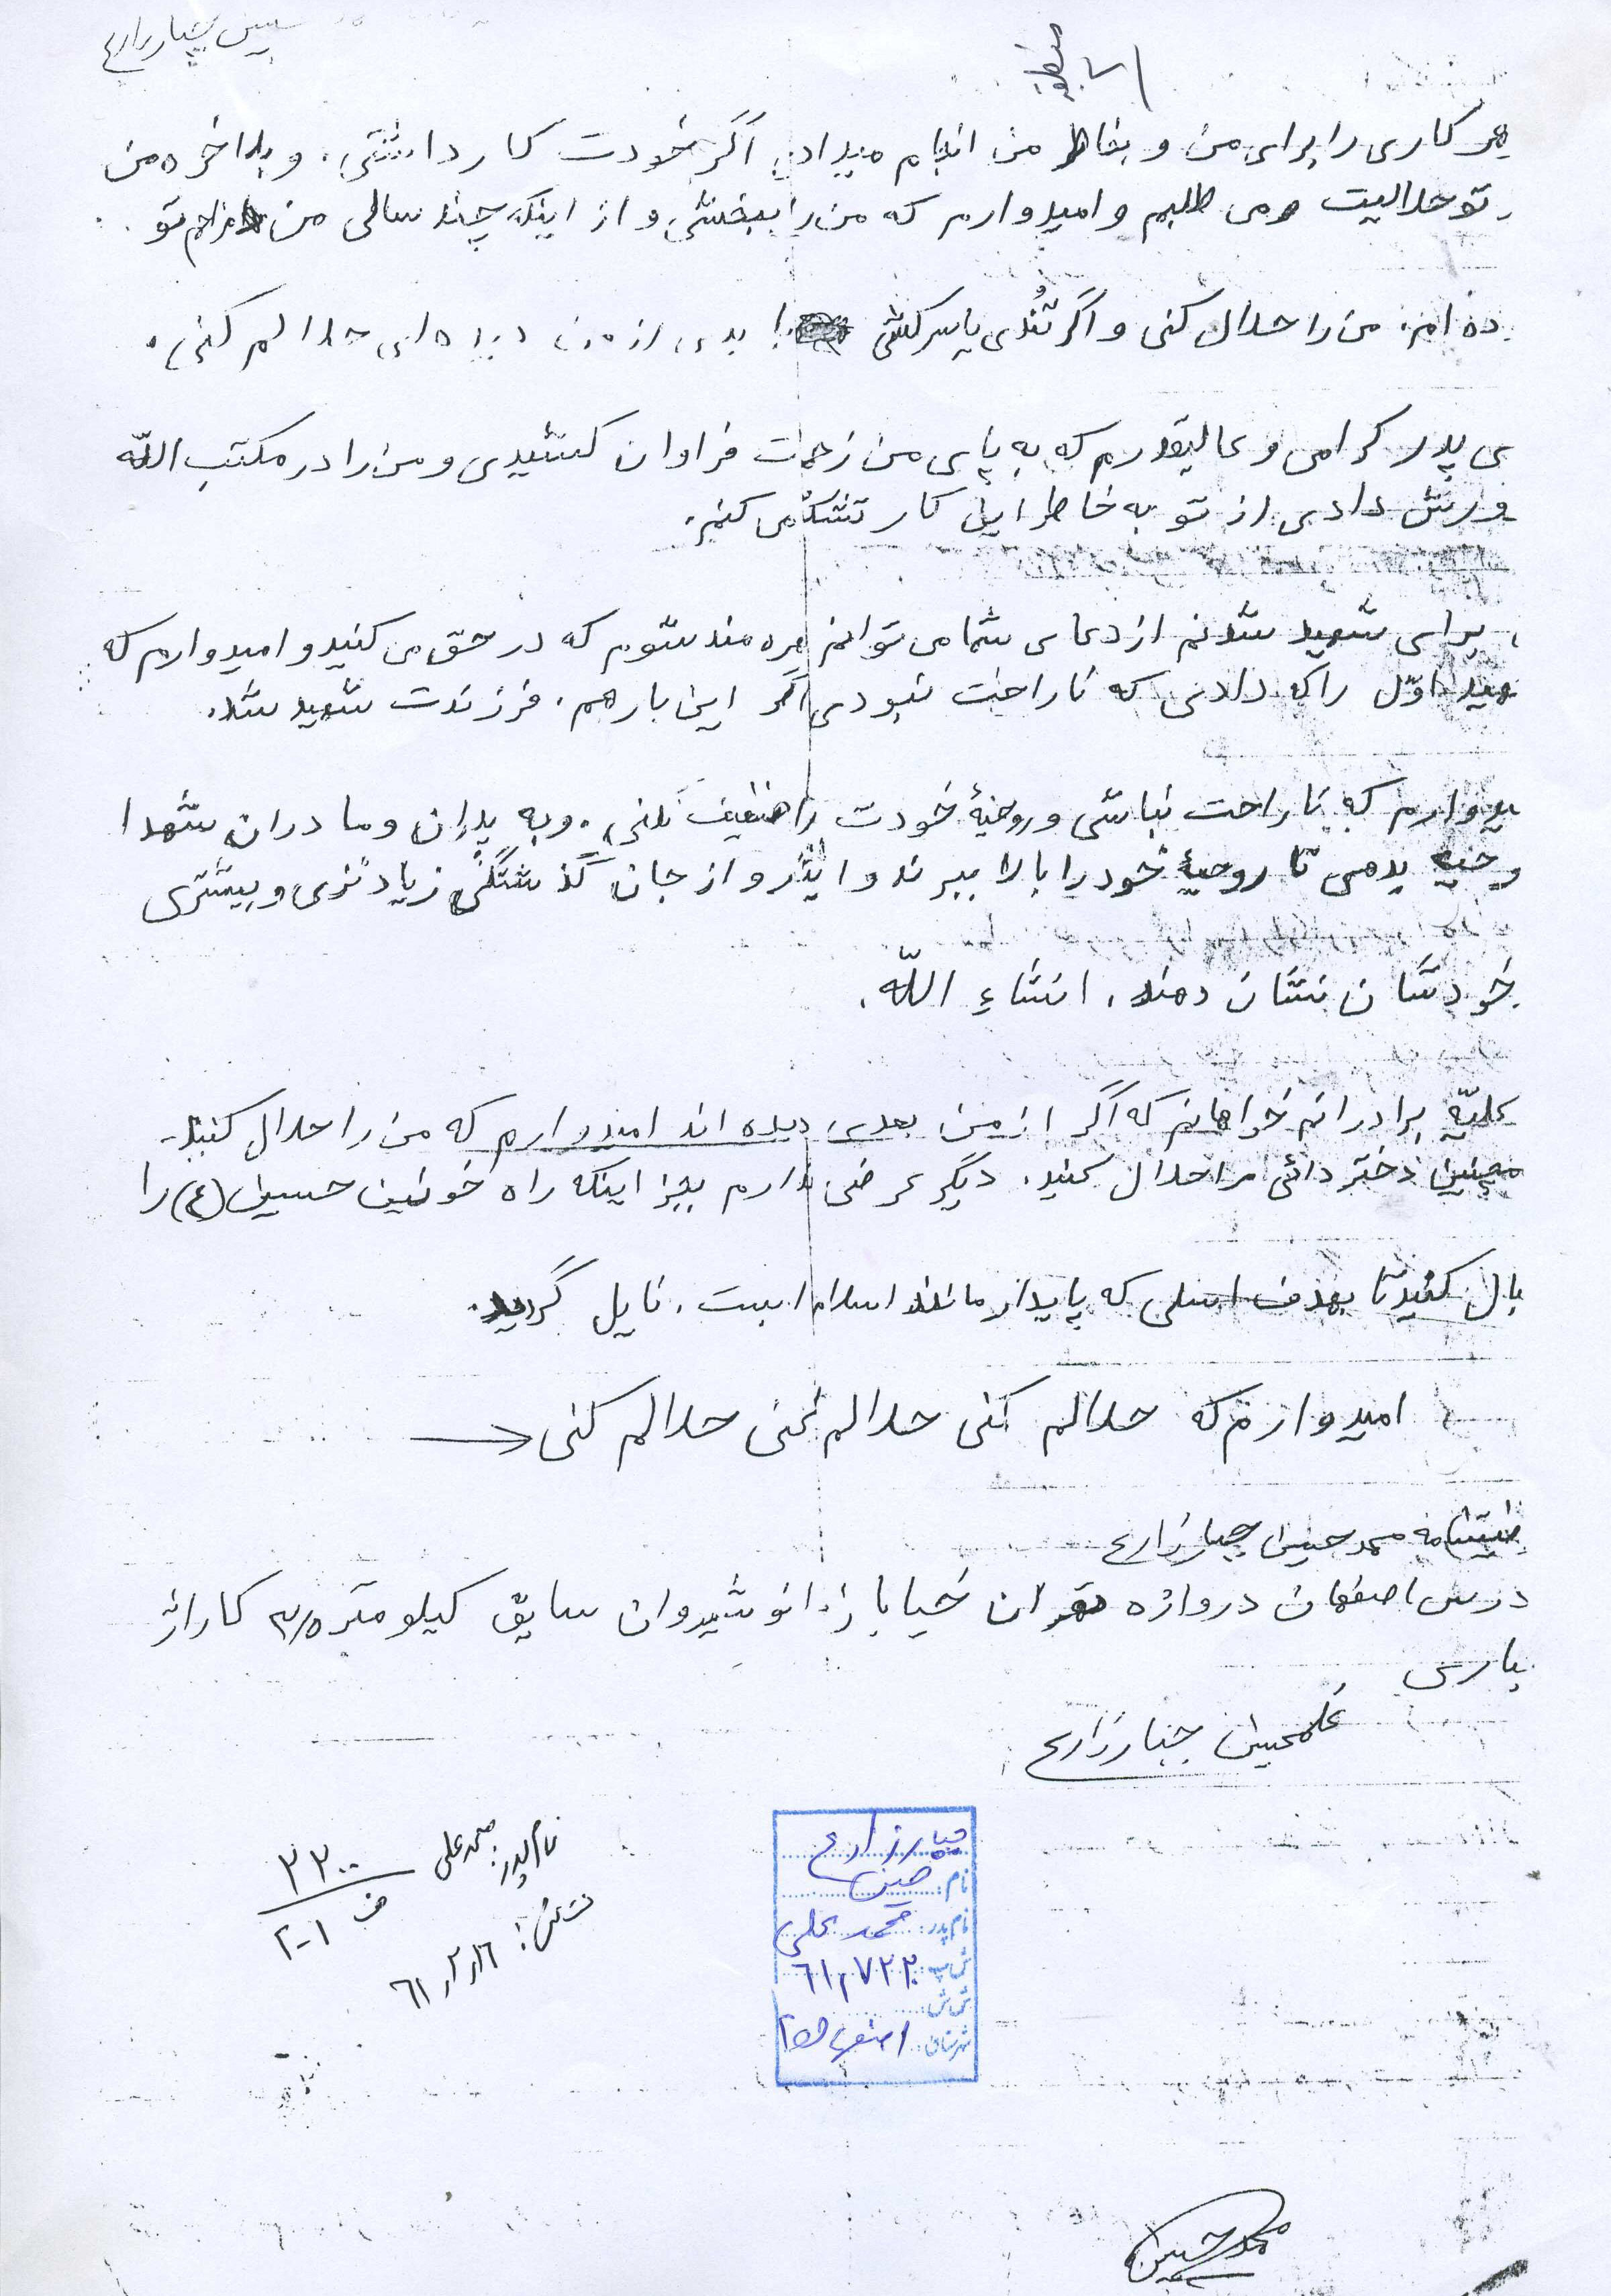 هر کاری را برای من و بخاطر من انجام میدادی اگر خودت کار داشتی. و بلاخره من
تو حلالیت می طلبم و امیدوارم که من را ببخشی و از اینکه چند سالی من مزاحم تو
ده ام. من را حلال کنی و اگر تُندی یا سرکشی یا بدی از من دیده ای حلالم کنی.
ی پدر گرامی و عالیقدرم که به پای من زحمت فراوان کشیدی و من را در مکتب اللّه
ورش دادی از تو به خاطر این کار تشکر می کنم.
برای شهید شدنم از دعای شما می توانم بهره مند شوم که در حق می کنید و امیدوارم که
هید اوّل را که دادی که ناراحت نبودی اگر این بار هم. فرزندت شهید شد.
یدوارم که ناراحت نباشی و روحیهٔ خودت را ضعیف نکنی. و به پدران و مادران شهدا
وحیه بدهی تا روحیهٔ خود را بالا ببرند و ایثار و از جان گذشتگی زیادتری و بیشتری
خودشان نشان دهند. انشاء اللّه.
کلیّه برادرانم خواهانم که اگر از من بدی دیده اند امیدوارم که من را حلال کنید.
همچنین دختر دائی مرا حلال کنید. دیگر عرضی ندارم بجز اینکه راه خونین حسین (ع) را
بال کنید تا بهدف اصلی که پایدار ماندن اسلام است. نایل گردید.
امیدوارم که حلالم کنی حلالم کنی حلالم کنی
محمد حسین جبار زارع
درس اصفهان دروازه تهران خیابان انوشیروان سابق کیلومتر ۳/۵ کاراژ
پارس
غلامحسین جبار زارع
نام پدر: محمد علی
۲۲۰۰
ف ۲۰۱
۶۱/۲/۱۶
جبار زارع
نام: حسین
نام پدر: محمد علی
ش پ: ۶۱٫۷۲۲
ش ش:
شهرستان: اصفهان
محمد حسین